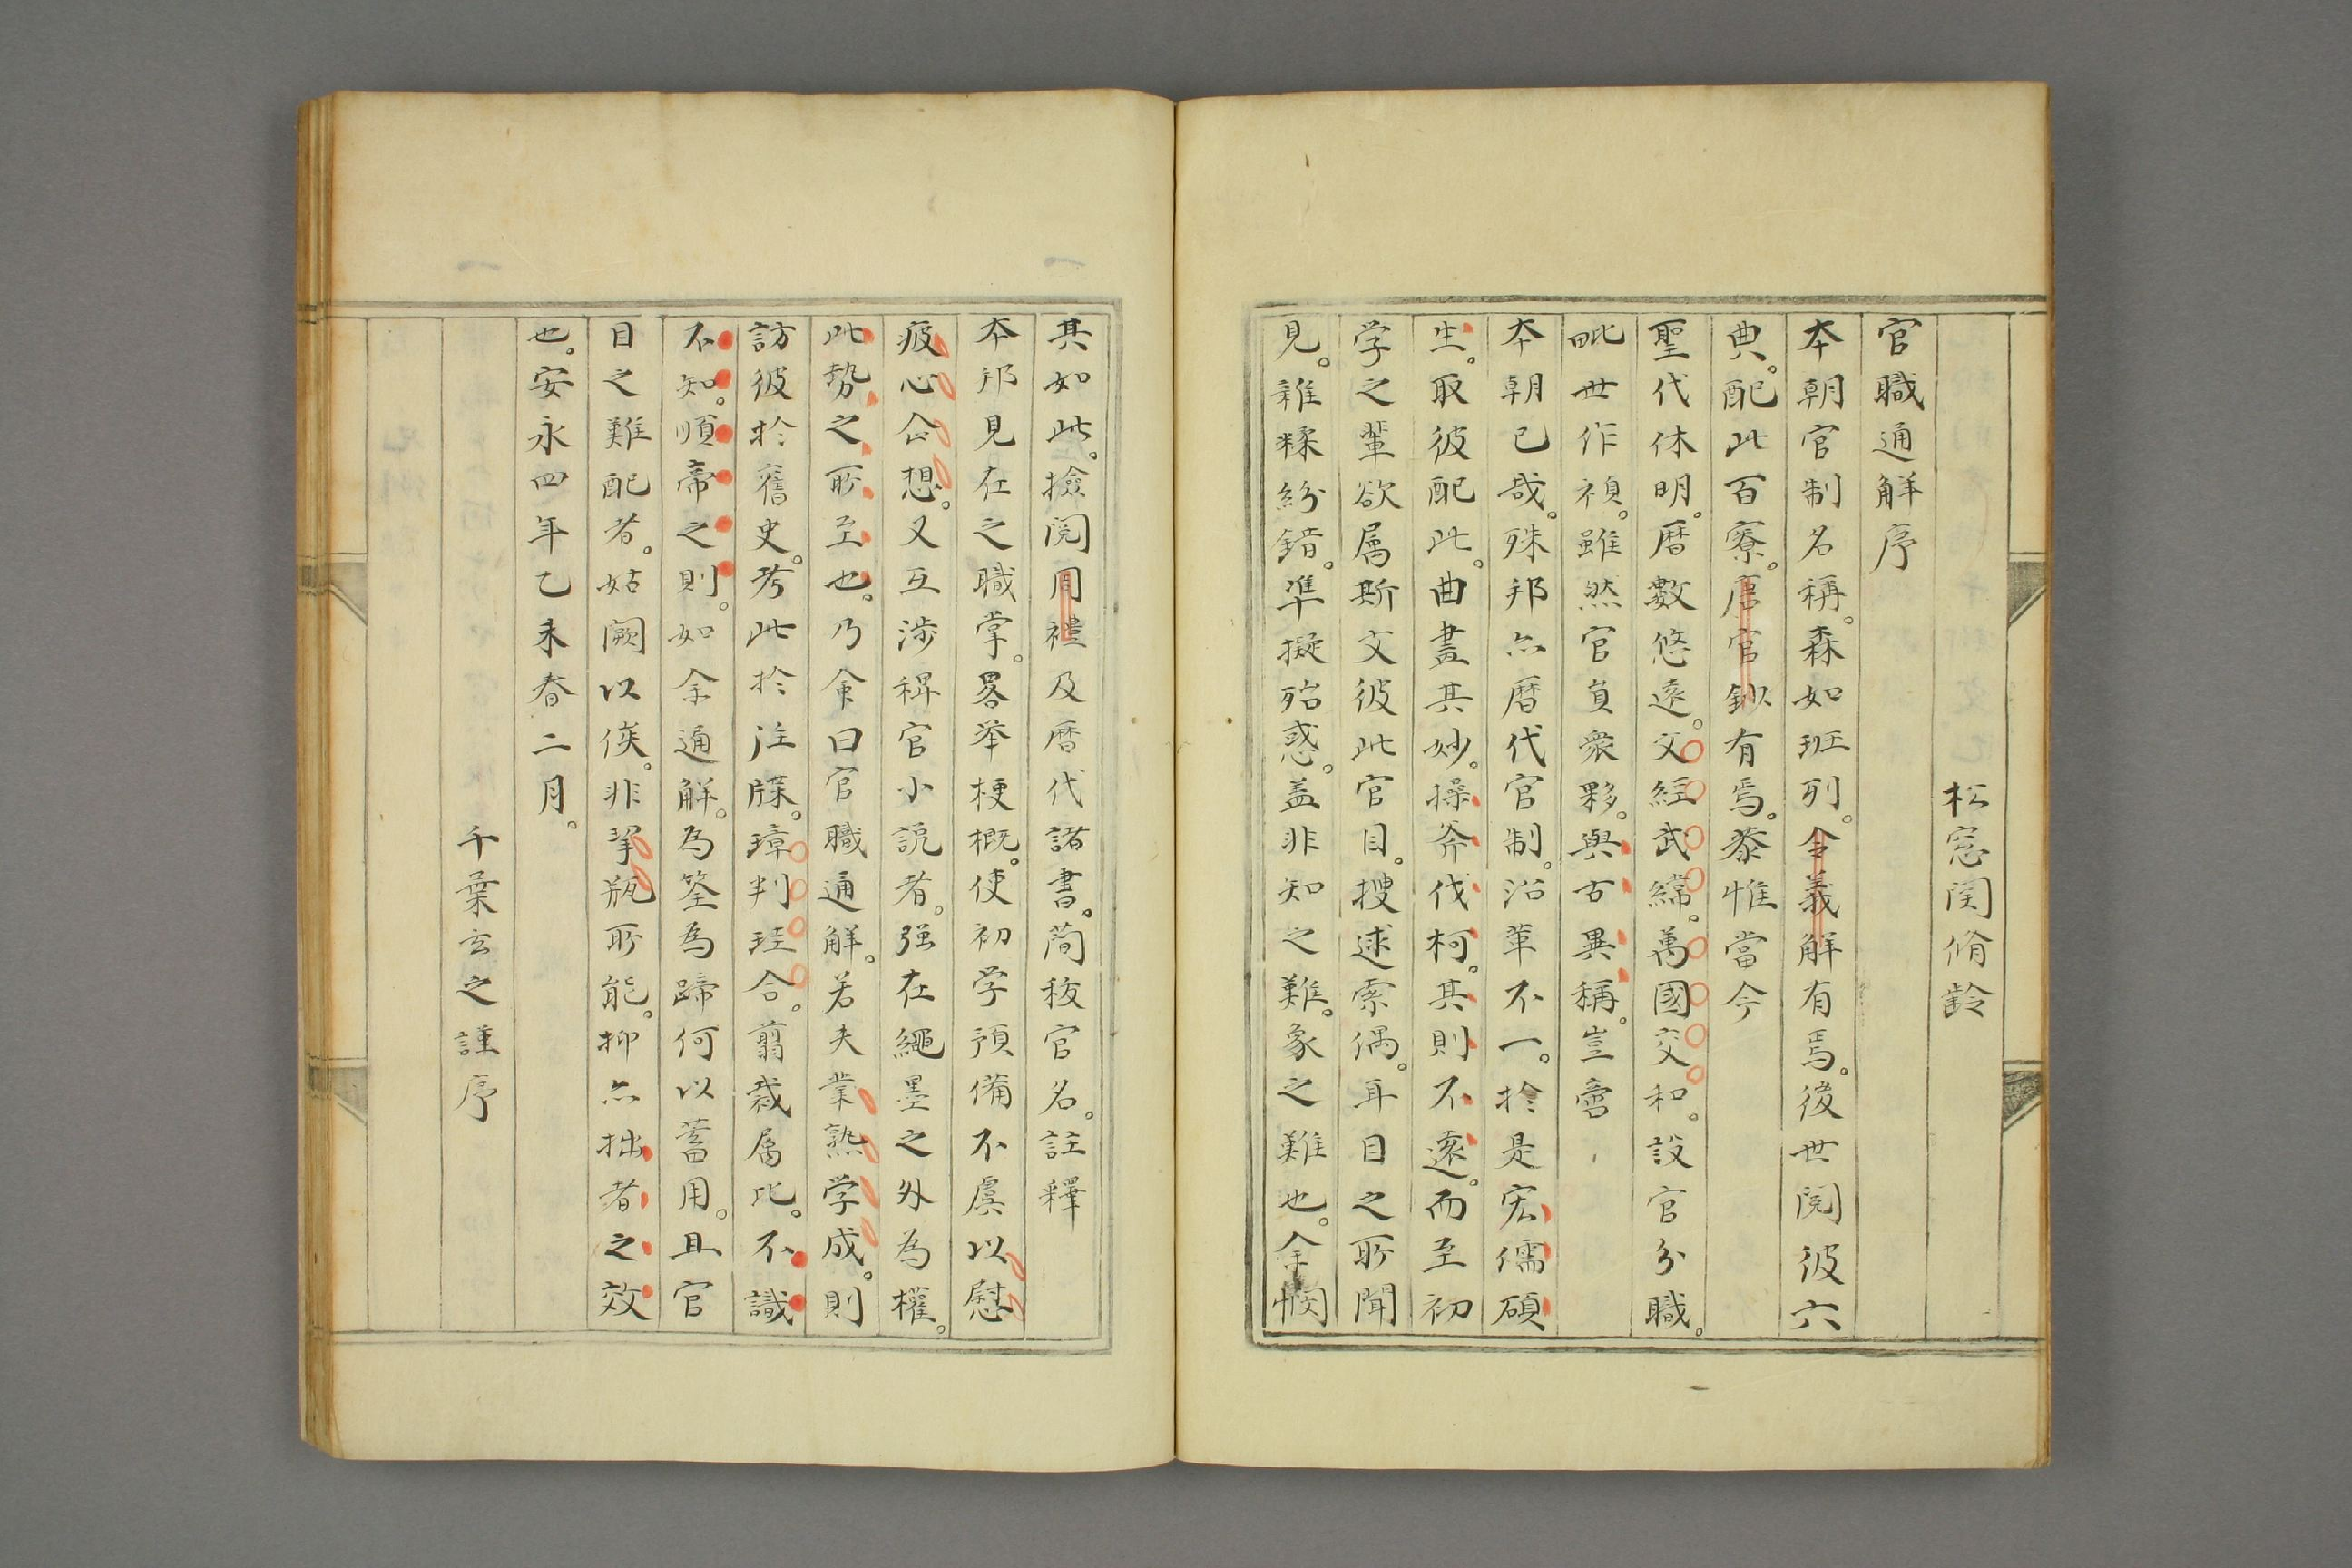 松窓関脩齢
官職通解序
本朝官制名稱。森如班列。令義解有焉。後世閲彼六
典。配此百寮。唐官鈔有焉。恭惟當今
聖代休明。暦數悠遠。文經武緯。萬國交和。設官分職。
毗世作禎。雖然官員衆夥。與古異稱。豈啻
本朝已哉。殊邦亦暦代官制。沿革不一。於是宏儒碩
生。取彼配此。曲盡其妙。操斧伐柯。其則不遠。而至初
学之輩欲属斯文彼此官目。捜逑索偶。耳目之所聞
見。雜糅紛錯。準擬殆惑。盖非知之難。象之難也。余憫
其如此。撿閲周禮及暦代諸書。蕳秡官名。註釋
本邦見在之職掌。畧举梗概。使初学預備不虞以慰
疲心企想。又互渉稗官小説者。强在繩墨之外為權。
此勢之所至也。乃命曰官職通解。若夫業熟学成。則
訪彼於舊史。考此於注牒。璋判珪合。翦裁属比。不識
不知。順帝之則。如余通解。為筌為蹄何以蓄用。且官
目之難配者。姑闕以俟。非挈瓶所能。抑亦拙者之效
也。安永四年乙未春二月。
千葉玄之謹序